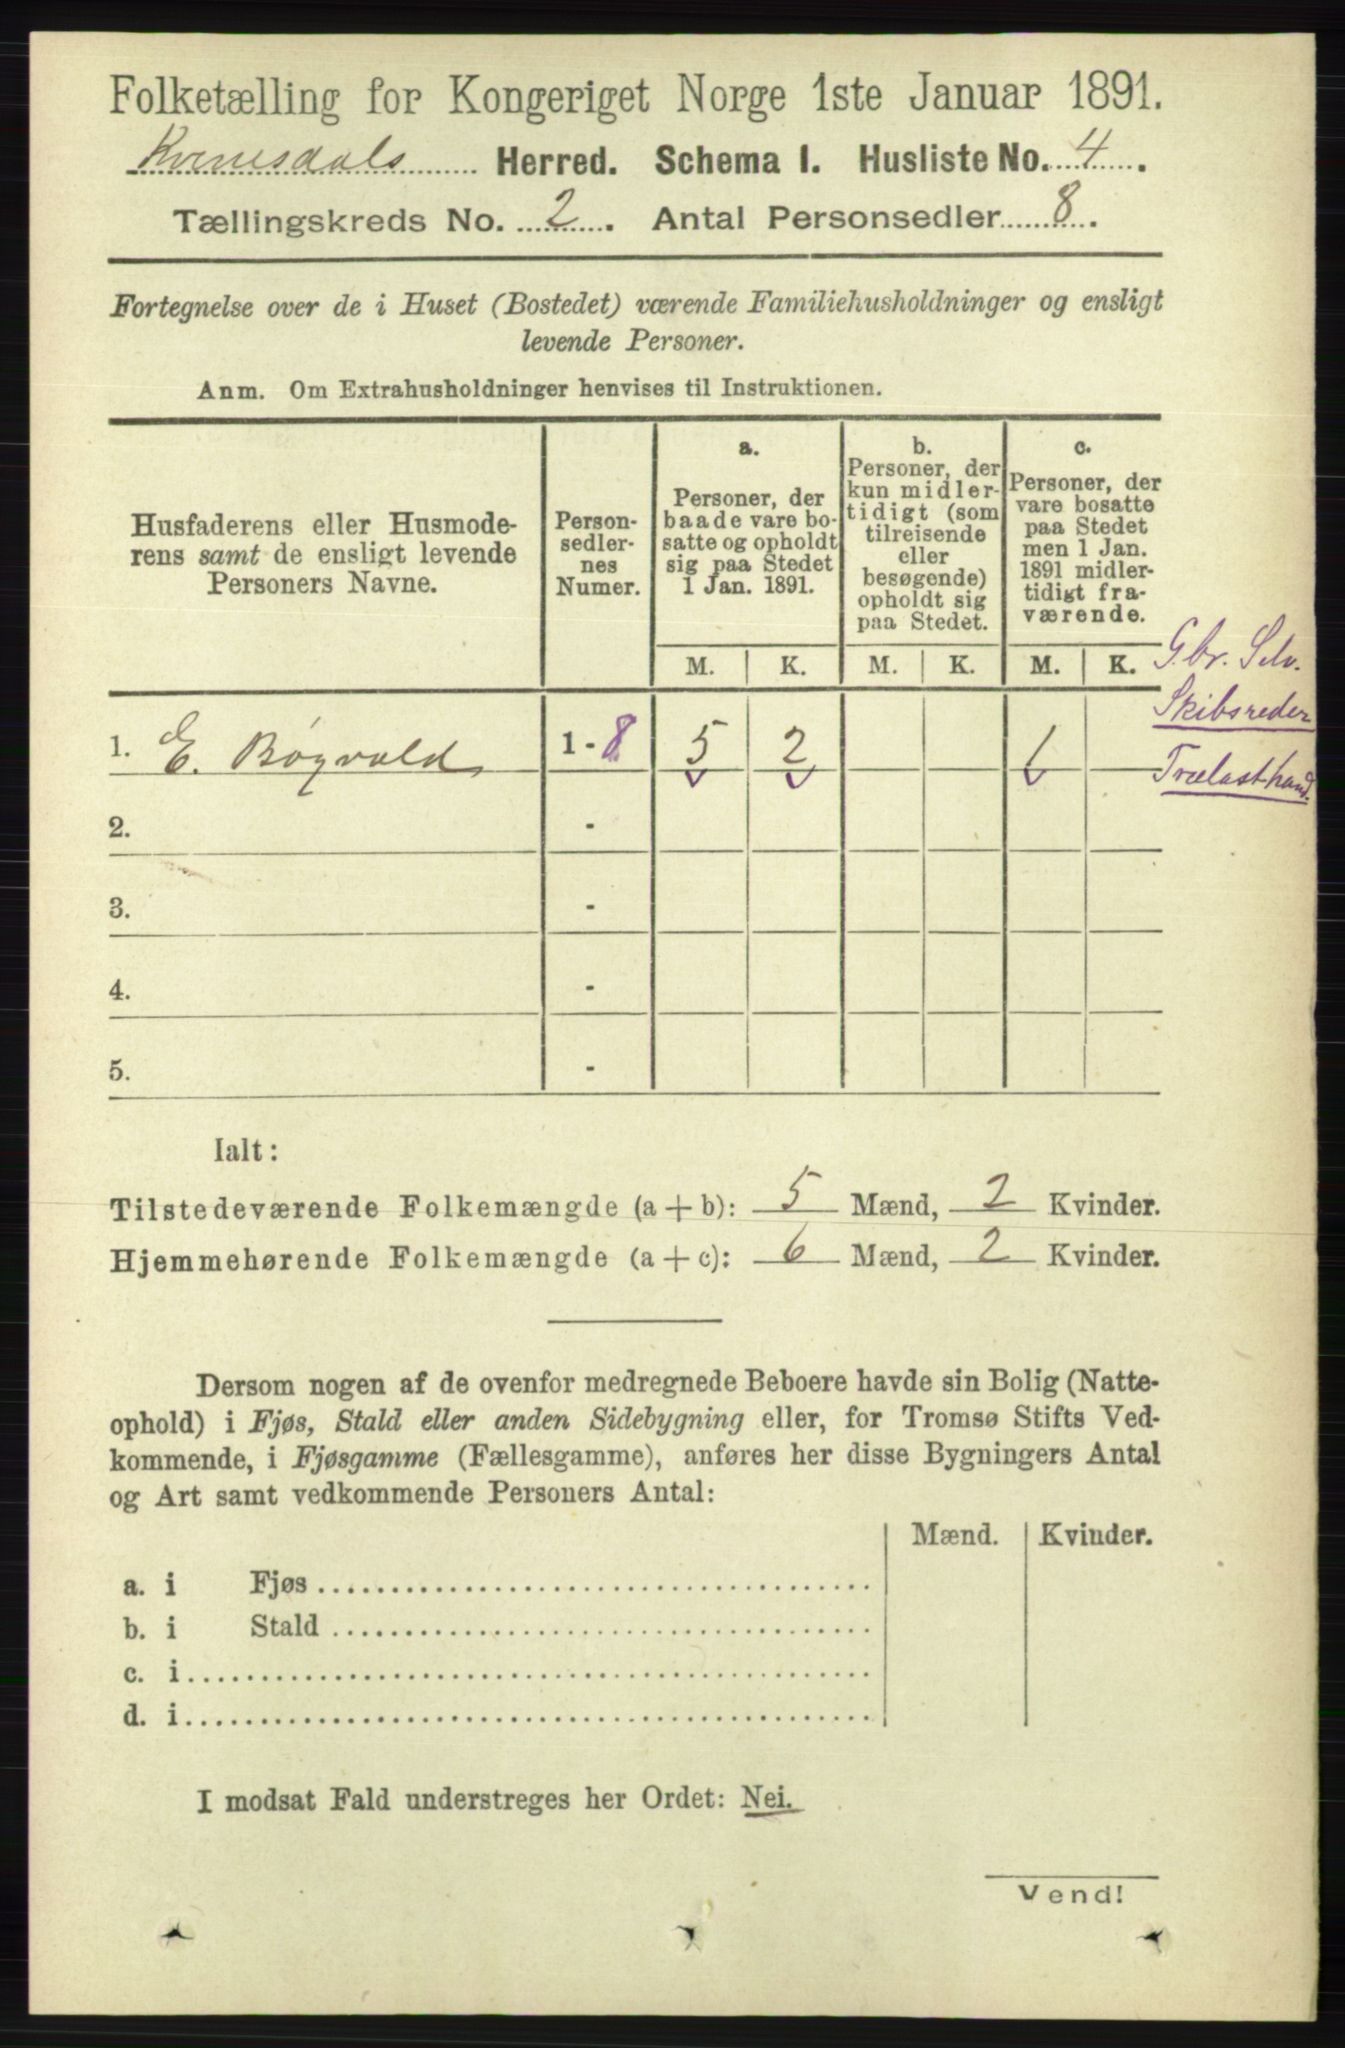 Folketælling for Kongeriget Norge 1ste Januar 1891.
Kvinesdals Herred. Schema I. Husliste No. 4.
Tællingskreds No. 2. Antal Personsedler 8.
Fortegnelse over de i Huset (Bostedet) værende Familiehusholdninger og ensligt
levende Personer.
Anm. Om Extrahusholdninger henvises til Instruktionen.
Husfaderens eller Husmode-
rens samt de ensligt levende
Personers Navne.
Person-
sedler-
nes
Numer.
a.
Personer, der
baade vare bo-
satte og opholdt
sig paa Stedet
1 Jan. 1891.
b.
Personer, der
kun midler-
tidigt (som
tilreisende
eller
besøgende)
opholdt sig
paa Stedet.
c.
Personer, der
vare bosatte
paa Stedet
men 1 Jan.
1891 midler-
tidigt fra-
værende.
M. K. M. K. M. K.
Gbr. Selv.
Skibsreder
Trælasthand.
1. E. Bøgvald 1 - 8 5 2 1
2. -
3. -
4. -
5. -
Ialt:
Tilstedeværende Folkemængde (a + b): 5 Mænd, 2 Kvinder.
Hjemmehørende Folkemængde (a + c): 6 Mænd, 2 Kvinder.
Dersom nogen af de ovenfor medregnede Beboere havde sin Bolig (Natte-
ophold) i Fjøs, Stald eller anden Sidebygning eller, for Tromsø Stifts Ved-
kommende, i Fjøsgamme (Fællesgamme), anføres her disse Bygningers Antal
og Art samt vedkommende Personers Antal:
Mænd. Kvinder.
a. i Fjøs
b. i Stald
c. i
d. i
I modsat Fald understreges her Ordet: Nei.
Vend!